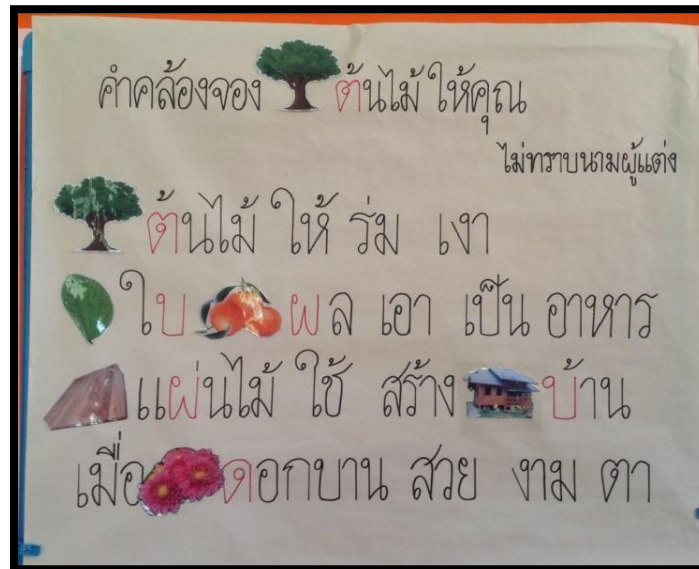 คำคล้องจอง ต้นไม้ ให้คุณ
ไม่ทราบนามผู้แต่ง
ต้นไม้ ให้ ร่ม เงา
ใบ ผล เอา เป็น อาหาร
แผ่นไม้ ใช้ สร้าง บ้าน
เมื่อ ดอกบาน สวย งาม ตา